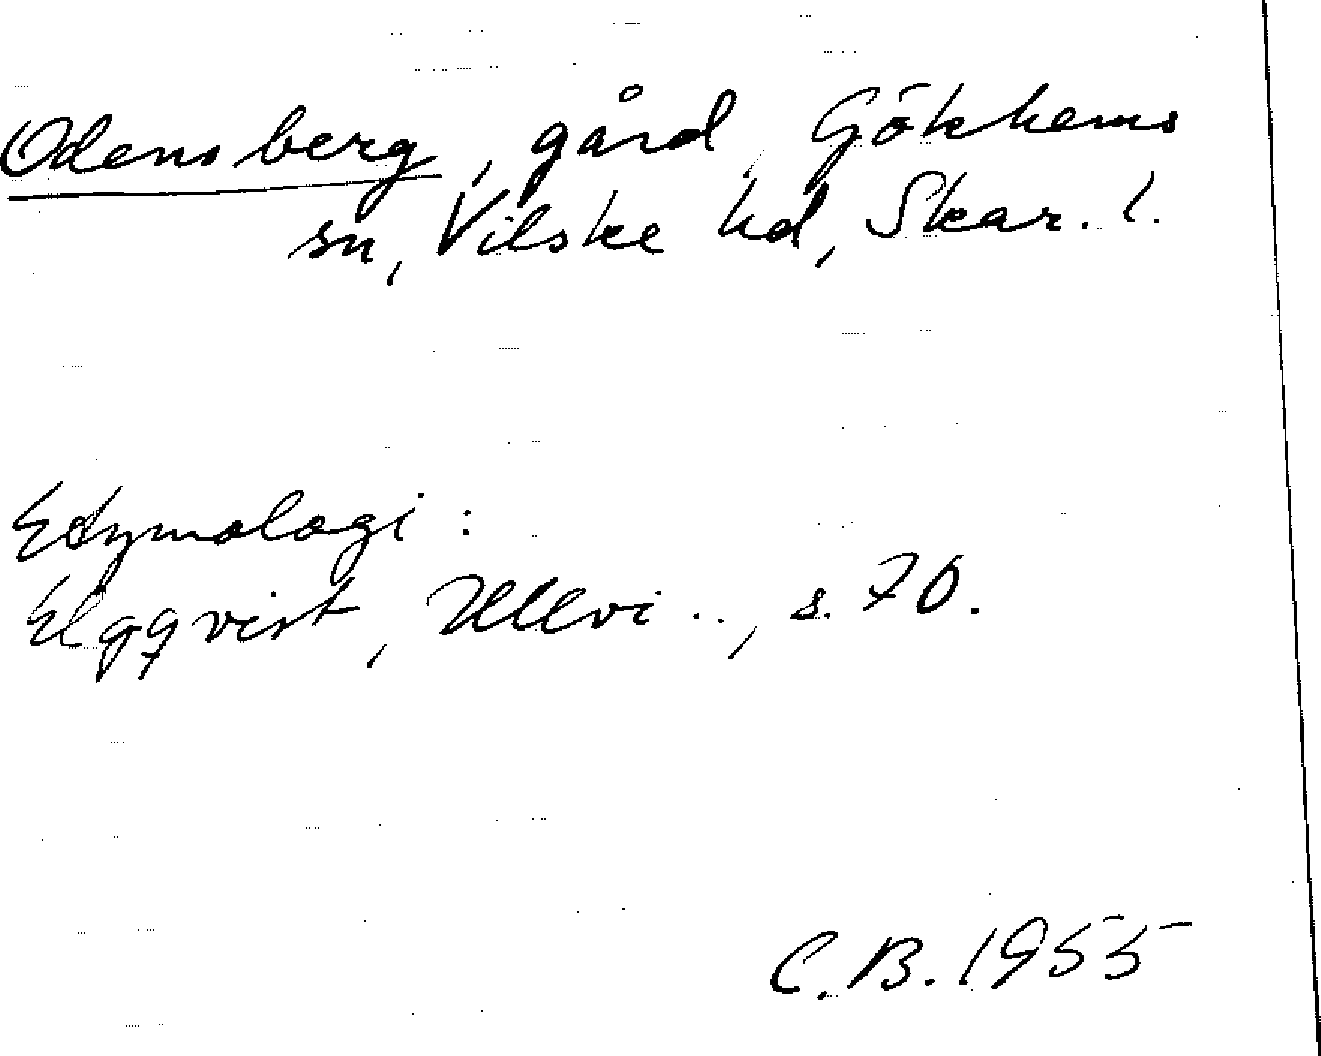 Odensberg, gård, Gökhems
sn, Vilske hd, Skar. l.
Etymologi:
Elgqvist, Ullvi.., s. 70.
C.B. 1955